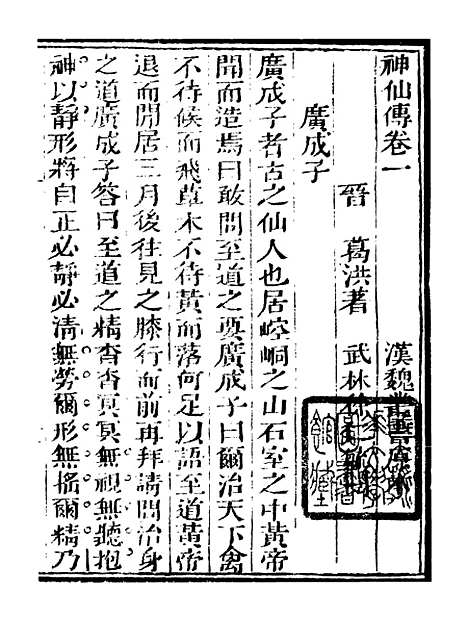 神仙傳卷一
漢魏叢書
晉 葛洪著 武林
廣成子
廣成子者古之仙人也居崆峒之山石室之中黃帝
聞而造焉曰敢問至道之要廣成子曰爾治天下禽
不待候而飛草木不待黃而落何足以語至道黃帝
退而閒居三月後往見之膝行而前再拜請問治身
之道廣成子答曰至道之精杳杳冥冥無視無聽抱
神以靜形將自正必靜必清無勞爾形無搖爾精乃